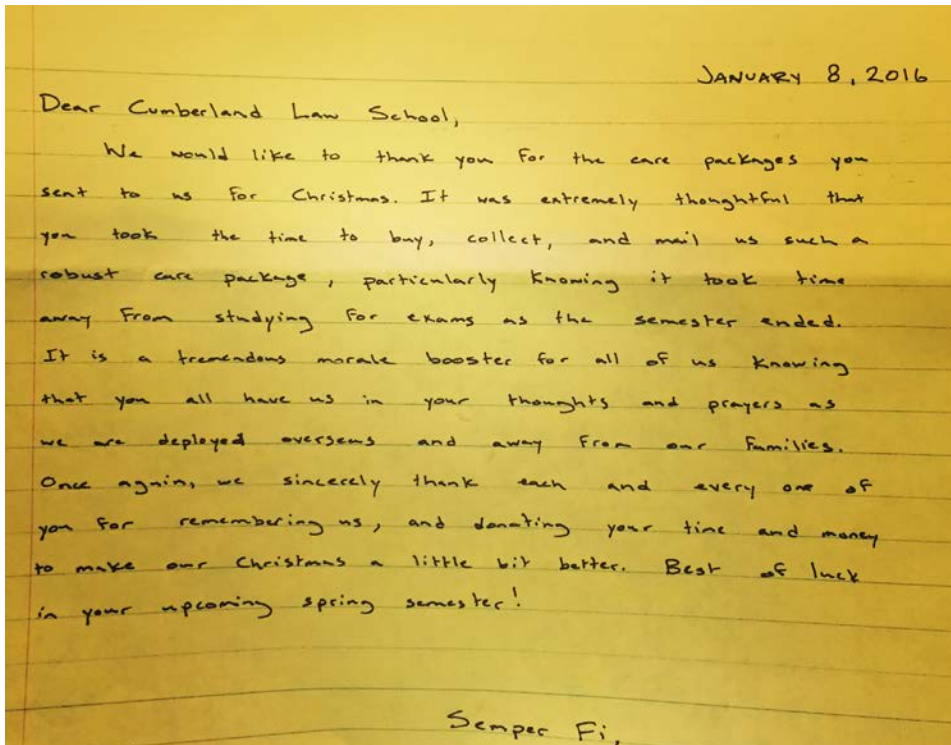 JANUARY 8, 2016
Dear Cumberland Law School,
We would like to thank you for the care packages you
sent to us for Christmas. It was extremely thoughtful that
you took the time to buy, collect, and mail us such a
robust care package, particularly knowing it took time
away from studying for exams as the semester ended.
It is a tremendous morale booster for all of us knowing
that you all have us in your thoughts and prayers as
we are deployed overseas and away from our families.
Once again, we sincerely thank each and every one of
you for remembering us, and donating your time and money
to make our Christmas a little bit better. Best of luck
in your upcoming spring semester!
Semper Fi,